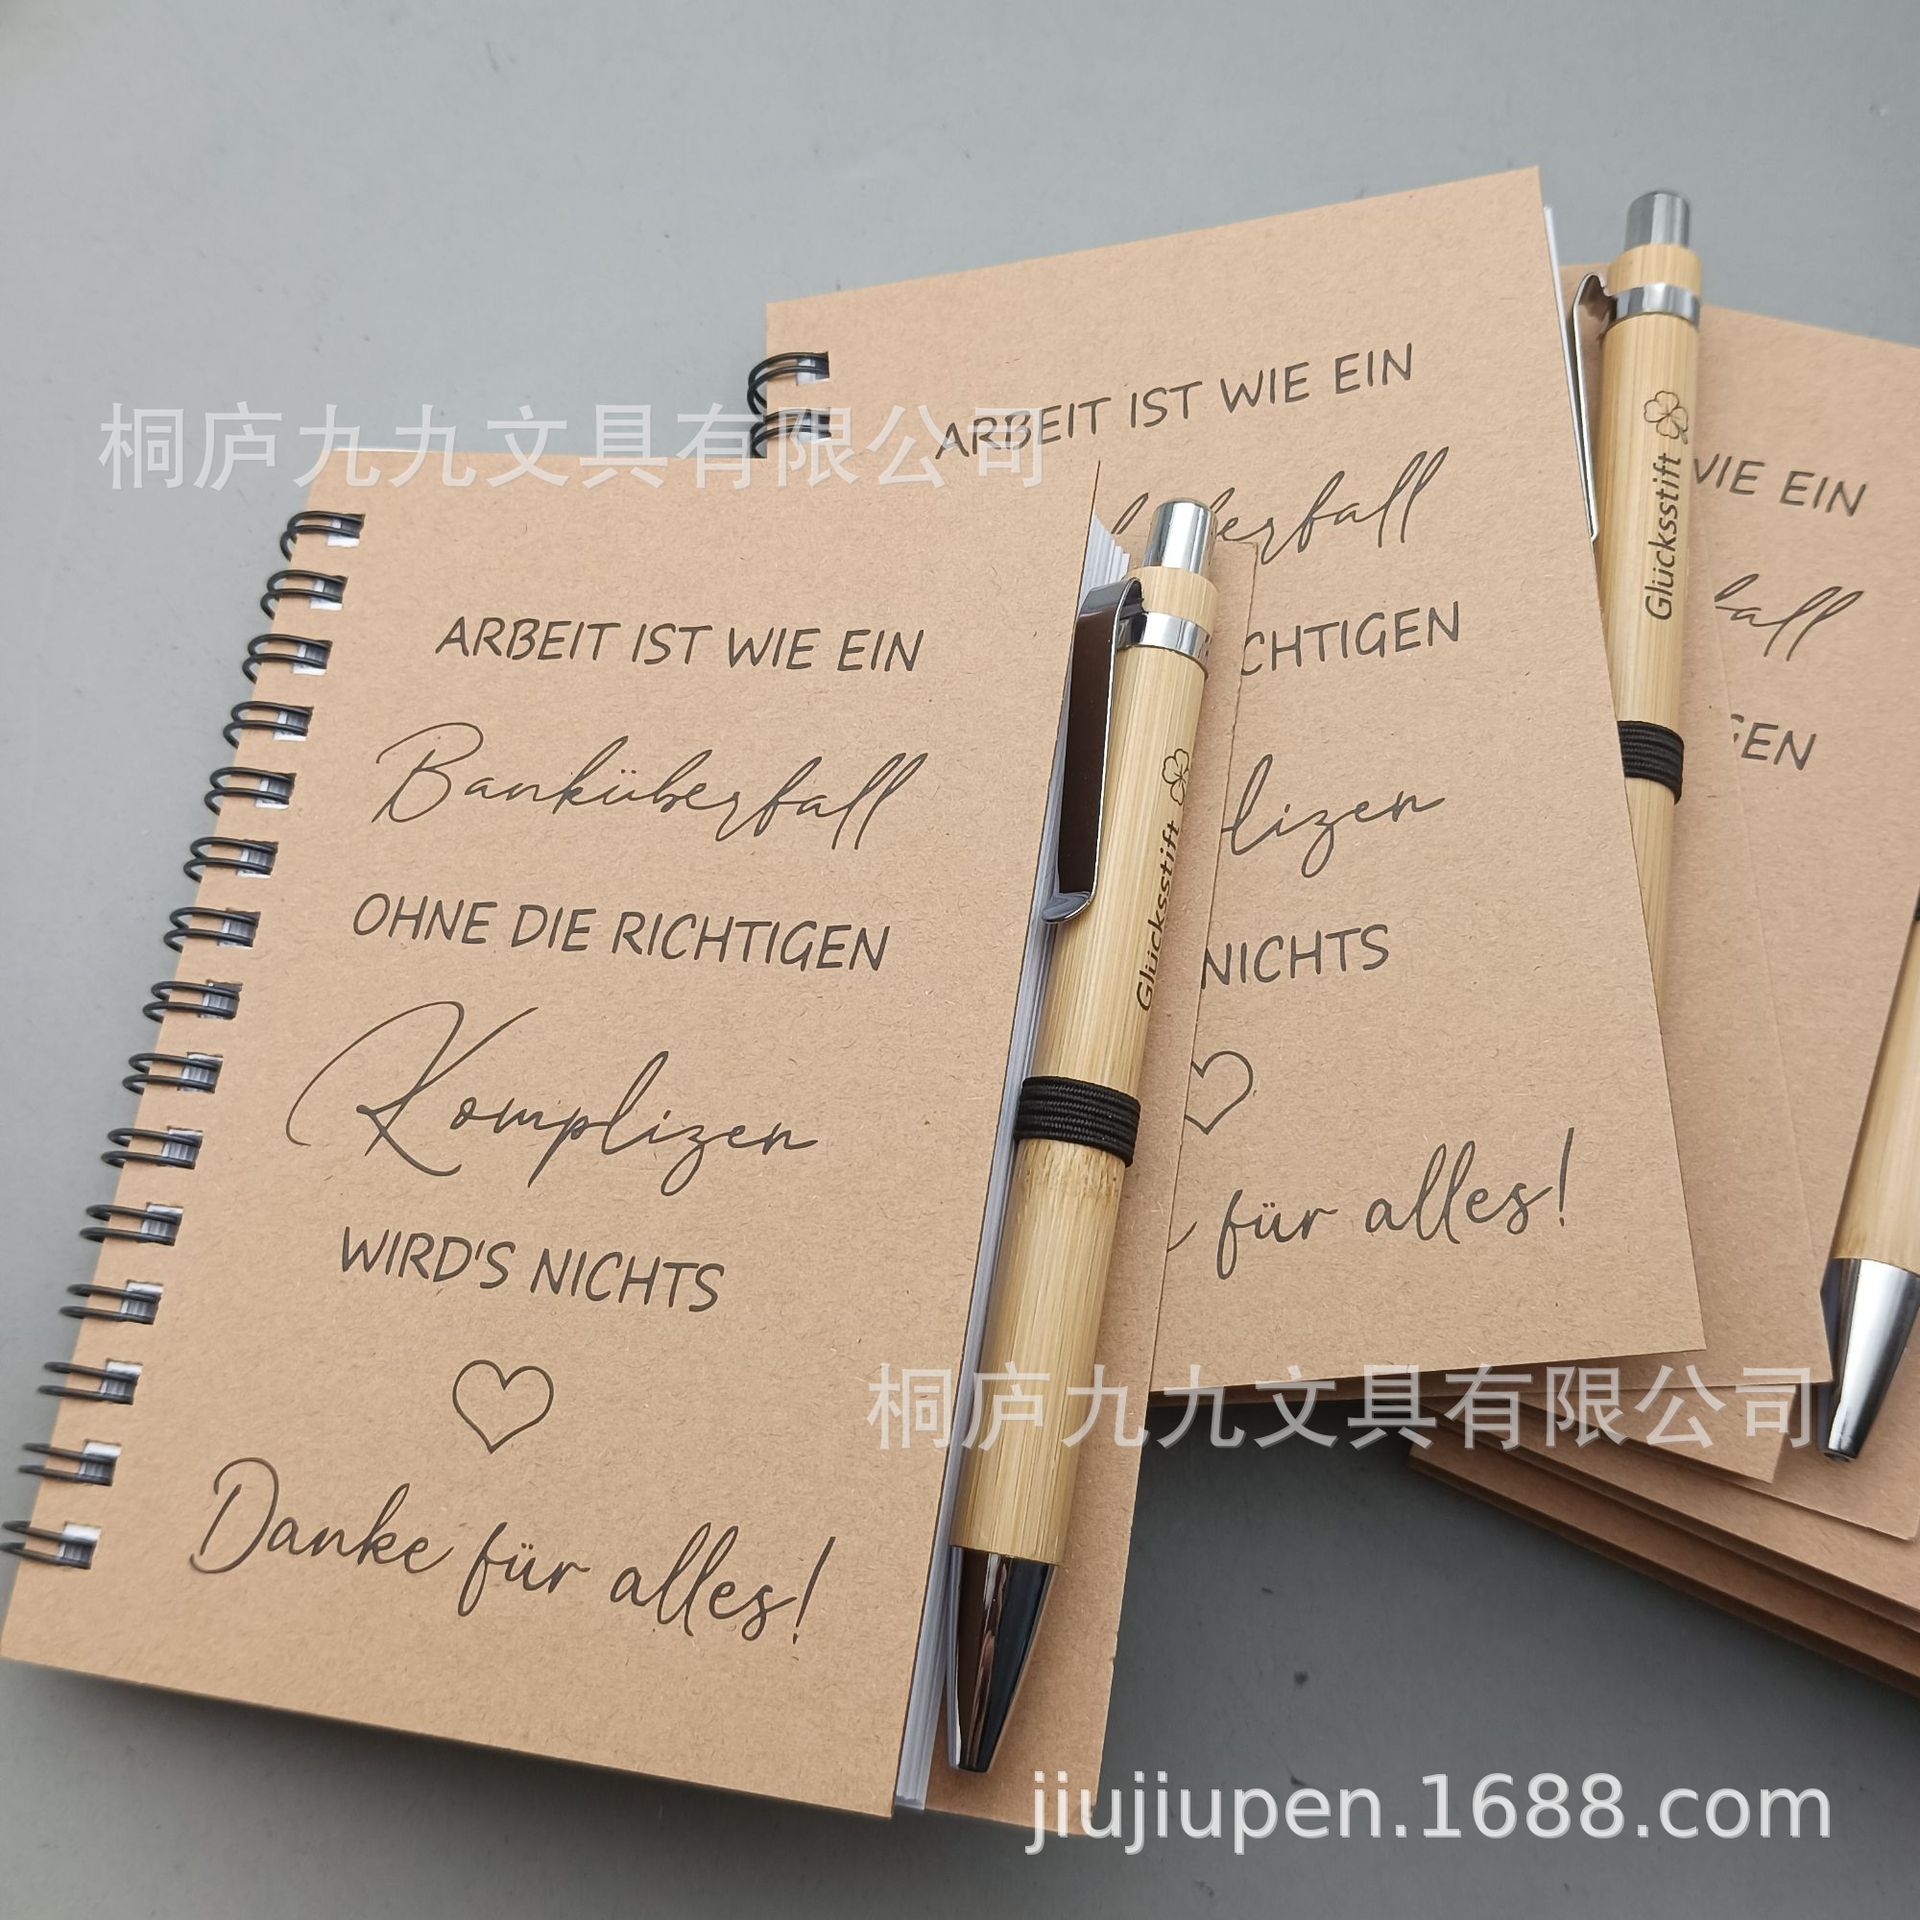 桐庐九九文具有限公司
ARBEIT IST WIE EIN
Banküberfall
OHNE DIE RICHTIGEN
Komplizen
WIRD'S NICHTS
Danke für alles!
Glücksstift
ARBEIT IST WIE EIN
NICHTS
für alles!
Glücksstift
EIN
桐庐九九文具有限公司
jiujiupen.1688.com